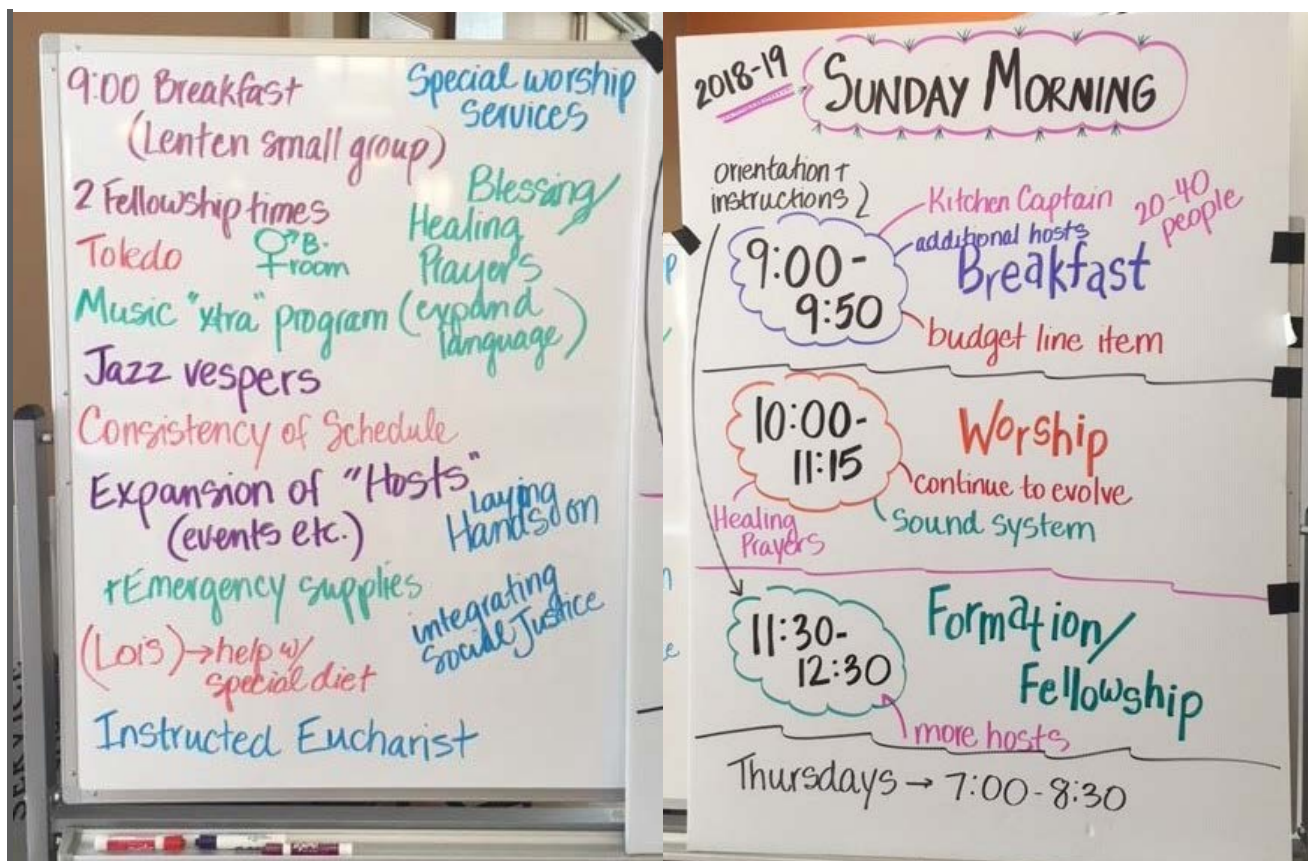 9:00 Breakfast
(Lenten small group)
2 Fellowship times
Toledo
B.
room
Music "xtra" program (expand
language)
Jazz vespers
Consistency of Schedule
Expansion of "Hosts"
(events etc.)
+Emergency supplies
(Lois) → help w/
special diet
Instructed Eucharist
Special worship
services
Blessing/
Healing
Prayers
laying
Hands on
integrating
Social Justice
2018-19
SUNDAY MORNING
orientation +
instructions
Kitchen Captain
20-40
people
additional hosts
9:00-
9:50
Breakfast
budget line item
10:00-
11:15
Worship
continue to evolve
Sound system
Healing
Prayers
11:30-
12:30
Formation/
Fellowship
more hosts
Thursdays → 7:00-8:30
SERVICE